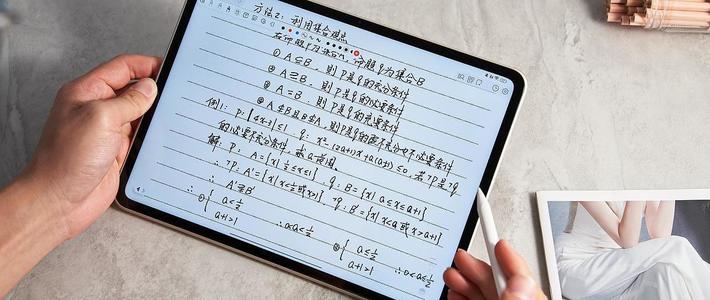 方法2：利用集合观点
若命题P为集合A，命题q为集合B
① A⊆B，则P是q的充分条件
② A⊇B，则P是q的必要条件
③ A=B，则P是q的充要条件
④ A⊈B且B⊈A，则P是q的既不充分也不必要条件
例1：P：|4x-3|≤1 q：x²-(2a+1)x+a(a+1)≤0，若¬P是¬q
的必要不充分条件，求a范围。
解：P：A={x|½≤x≤1} q：B={x|a≤x≤a+1}
∴ ¬P：A'={x|x<½或x>1} ¬q：B'={x|x<a或x>a+1}